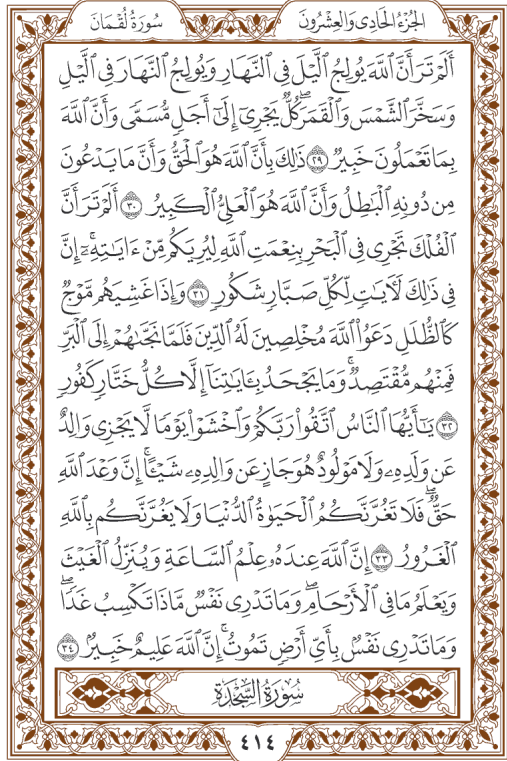 الجُزْءُ الحَادِى وَالعِشْرُونَ
سُورَةُ لُقْمَانَ
أَلَمْ تَرَ أَنَّ ٱللَّهَ يُولِجُ ٱلَّيْلَ فِى ٱلنَّهَارِ وَيُولِجُ ٱلنَّهَارَ فِى ٱلَّيْلِ
وَسَخَّرَ ٱلشَّمْسَ وَٱلْقَمَرَ كُلٌّۖ يَجْرِىٓ إِلَىٰٓ أَجَلٍ مُّسَمًّى وَأَنَّ ٱللَّهَ
بِمَا تَعْمَلُونَ خَبِيرٌ ٢٩ ذَٰلِكَ بِأَنَّ ٱللَّهَ هُوَ ٱلْحَقُّ وَأَنَّ مَا يَدْعُونَ
مِن دُونِهِ ٱلْبَٰطِلُ وَأَنَّ ٱللَّهَ هُوَ ٱلْعَلِىُّ ٱلْكَبِيرُ ٣٠ أَلَمْ تَرَ أَنَّ
ٱلْفُلْكَ تَجْرِى فِى ٱلْبَحْرِ بِنِعْمَتِ ٱللَّهِ لِيُرِيَكُم مِّنْ ءَايَٰتِهِۦٓۚ إِنَّ
فِى ذَٰلِكَ لَءَايَٰتٍ لِّكُلِّ صَبَّارٍ شَكُورٍ ٣١ وَإِذَا غَشِيَهُم مَّوْجٌ
كَٱلظُّلَلِ دَعَوُا۟ ٱللَّهَ مُخْلِصِينَ لَهُ ٱلدِّينَ فَلَمَّا نَجَّىٰهُمْ إِلَى ٱلْبَرِّ
فَمِنْهُم مُّقْتَصِدٌۚ وَمَا يَجْحَدُ بِـَٔايَٰتِنَآ إِلَّا كُلُّ خَتَّارٍ كَفُورٍ
٣٢ يَٰٓأَيُّهَا ٱلنَّاسُ ٱتَّقُوا۟ رَبَّكُمْ وَٱخْشَوْا۟ يَوْمًا لَّا يَجْزِى وَالِدٌ
عَن وَلَدِهِۦ وَلَا مَوْلُودٌ هُوَ جَازٍ عَن وَالِدِهِۦ شَيْـًٔاۚ إِنَّ وَعْدَ ٱللَّهِ
حَقٌّۖ فَلَا تَغُرَّنَّكُمُ ٱلْحَيَوٰةُ ٱلدُّنْيَا وَلَا يَغُرَّنَّكُم بِٱللَّهِ
ٱلْغَرُورُ ٣٣ إِنَّ ٱللَّهَ عِندَهُۥ عِلْمُ ٱلسَّاعَةِ وَيُنَزِّلُ ٱلْغَيْثَ
وَيَعْلَمُ مَا فِى ٱلْأَرْحَامِۖ وَمَا تَدْرِى نَفْسٌ مَّاذَا تَكْسِبُ غَدًاۖ
وَمَا تَدْرِى نَفْسٌۢ بِأَىِّ أَرْضٍ تَمُوتُۚ إِنَّ ٱللَّهَ عَلِيمٌ خَبِيرٌۢ ٣٤
سُورَةُ السَّجْدَةِ
٤١٤